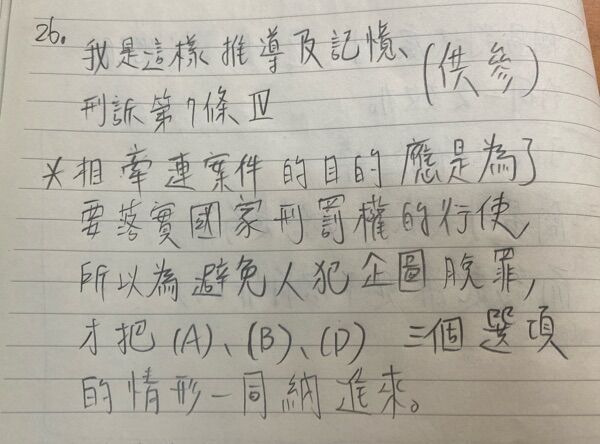 26.
我是這樣推導及記憶、(供參)
刑訴第7條Ⅳ
*相牽連案件的目的應是為了
要落實國家刑罰權的行使,
所以為避免人犯企圖脫罪,
才把(A)、(B)、(D)三個選項
的情形一同納進來。